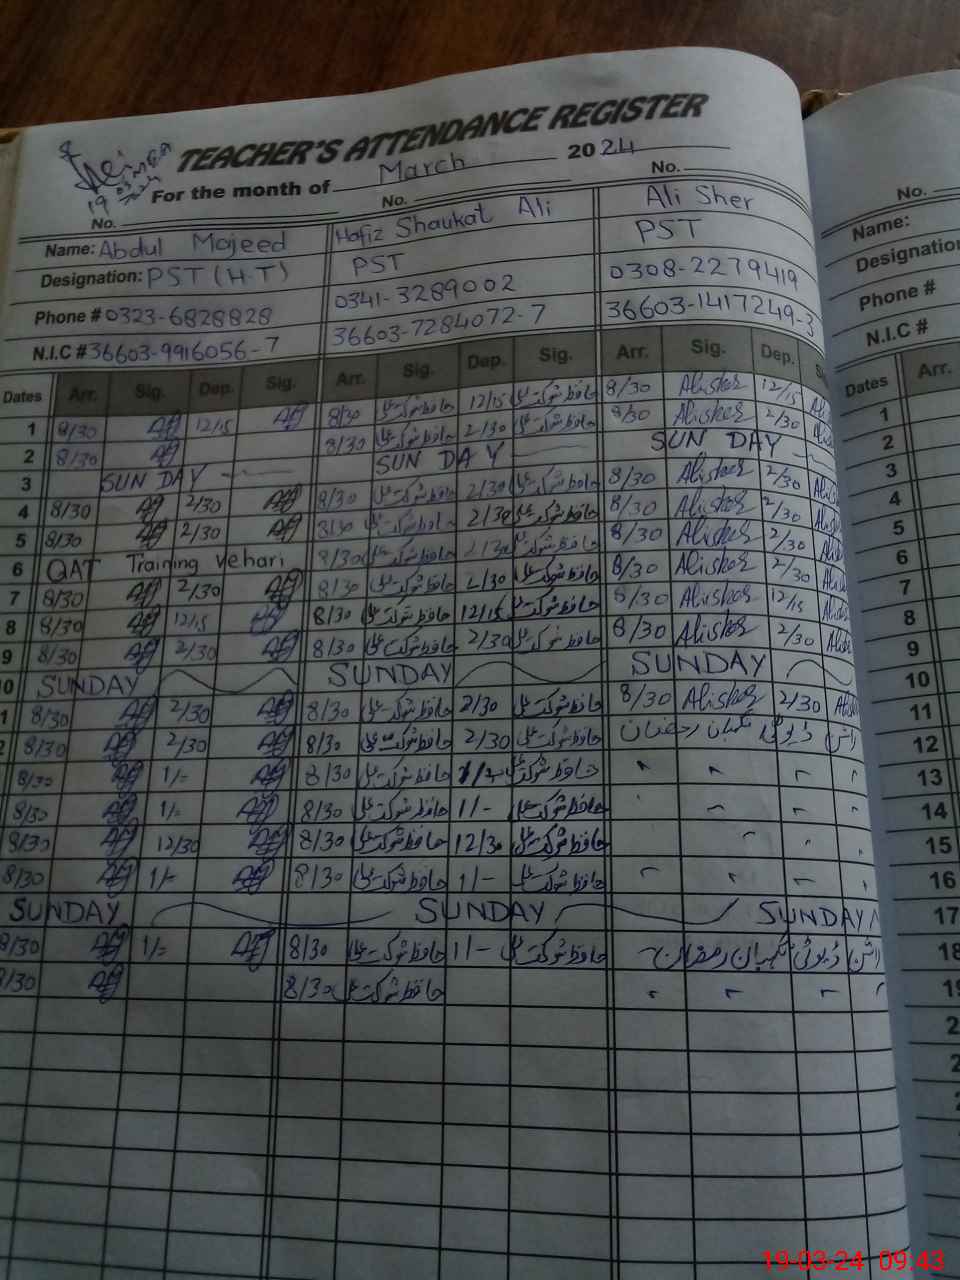 TEACHER'S ATTENDANCE REGISTER
19 03 2024
For the month of March 2024
No. No. No.
Name: Abdul Majeed Hafiz Shaukat Ali Ali Sher
Designation: PST (H-T) PST PST
Phone # 0323-6828828 0341-3289002 0308-2279419
N.I.C # 36603-9916056-7 36603-7284072-7 36603-1417249-3
Dates Arr. Sig. Dep. Sig. Arr. Sig. Dep. Sig. Arr. Sig. Dep.
1 8/30 12/15 8/30 حافظ شوکت علی 12/15 حافظ شوکت علی 8/30 Alisher 12/15
2 8/30 8/30 حافظ شوکت علی 2/30 حافظ شوکت علی 8/30 Alisher 2/30
3 SUNDAY SUNDAY SUNDAY
4 8/30 2/30 8/30 حافظ شوکت علی 2/30 حافظ شوکت علی 8/30 Alisher 2/30
5 8/30 2/30 8/30 حافظ شوکت علی 2/30 حافظ شوکت علی 8/30 Alisher 2/30
6 QAT Training Vehari 8/30 حافظ شوکت علی 2/30 حافظ شوکت علی 8/30 Alisher 2/30
7 8/30 2/30 8/30 حافظ شوکت علی 2/30 حافظ شوکت علی 8/30 Alisher 2/30
8 8/30 12/15 8/30 حافظ شوکت علی 12/15 حافظ شوکت علی 8/30 Alisher 12/15
9 8/30 2/30 8/30 حافظ شوکت علی 2/30 حافظ شوکت علی 8/30 Alisher 2/30
10 SUNDAY SUNDAY SUNDAY
11 8/30 2/30 8/30 حافظ شوکت علی 2/30 حافظ شوکت علی 8/30 Alisher 2/30
12 8/30 2/30 8/30 حافظ شوکت علی 2/30 حافظ شوکت علی راشن ڈیوٹی نگہبان رمضان
13 8/30 1/- 8/30 حافظ شوکت علی حافظ شوکت علی
14 8/30 1/- 8/30 حافظ شوکت علی 1/- حافظ شوکت علی
15 8/30 12/30 8/30 حافظ شوکت علی 12/30 حافظ شوکت علی
16 8/30 1/- 8/30 حافظ شوکت علی 1/- حافظ شوکت علی
17 SUNDAY SUNDAY SUNDAY
18 8/30 1/- 8/30 حافظ شوکت علی 1/- حافظ شوکت علی راشن ڈیوٹی نگہبان رمضان
8/30 8/30 حافظ شوکت علی
No.
Name:
Designation
Phone #
N.I.C #
Dates Arr.
1
2
3
4
5
6
7
8
9
10
11
12
13
14
15
16
17
18
19-03-24 09:43